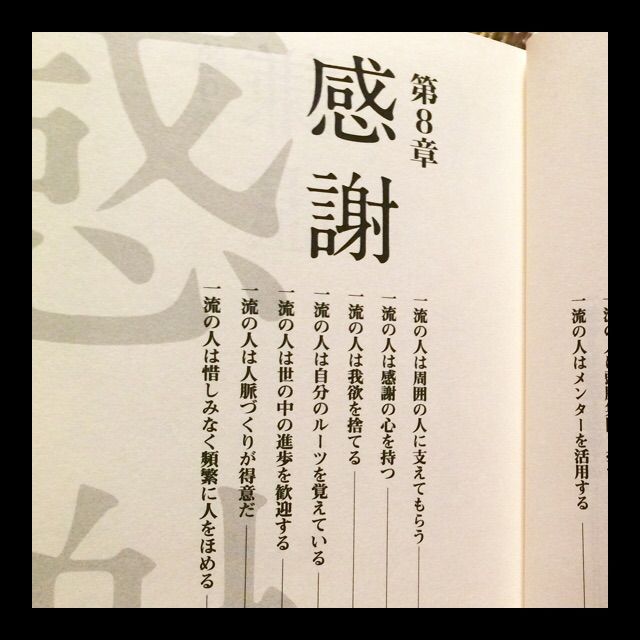 一流の人はメンターを活用する
第8章
感謝
一流の人は周囲の人に支えてもらう
一流の人は感謝の心を持つ
一流の人は我欲を捨てる
一流の人は自分のルーツを覚えている
一流の人は世の中の進歩を歓迎する
一流の人は人脈づくりが得意だ
一流の人は惜しみなく頻繁に人をほめる